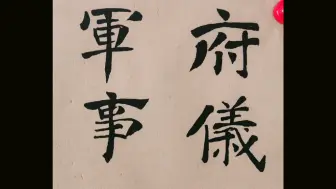 府儀
軍事